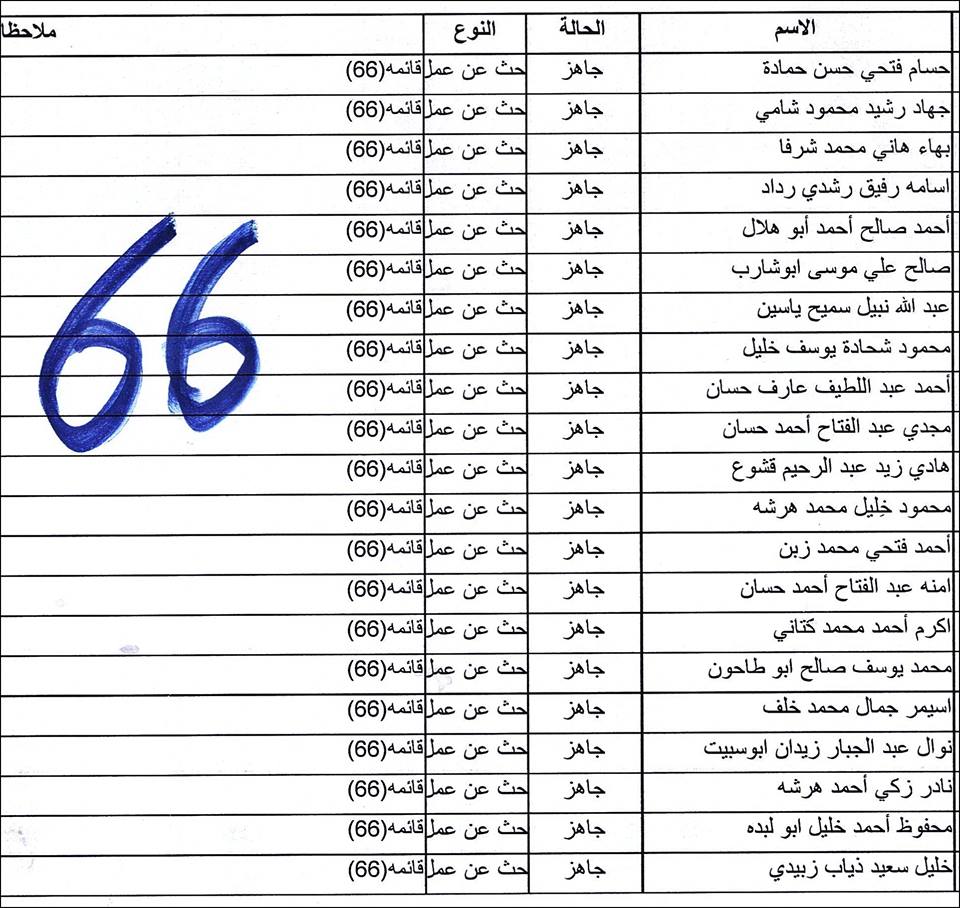 الاسم الحالة النوع ملاحظا
حسام فتحي حسن حمادة جاهز حث عن عمل قائمه(66)
جهاد رشيد محمود شامي جاهز حث عن عمل قائمه(66)
بهاء هاني محمد شرفا جاهز حث عن عمل قائمه(66)
اسامه رفيق رشدي رداد جاهز حث عن عمل قائمه(66)
أحمد صالح أحمد أبو هلال جاهز حث عن عمل قائمه(66)
صالح علي موسى ابوشارب جاهز حث عن عمل قائمه(66)
عبد الله نبيل سميح ياسين جاهز حث عن عمل قائمه(66)
محمود شحادة يوسف خليل جاهز حث عن عمل قائمه(66)
أحمد عبد اللطيف عارف حسان جاهز حث عن عمل قائمه(66)
مجدي عبد الفتاح أحمد حسان جاهز حث عن عمل قائمه(66)
هادي زيد عبد الرحيم قشوع جاهز حث عن عمل قائمه(66)
محمود خليل محمد هرشه جاهز حث عن عمل قائمه(66)
أحمد فتحي محمد زبن جاهز حث عن عمل قائمه(66)
امنه عبد الفتاح أحمد حسان جاهز حث عن عمل قائمه(66)
اكرم أحمد محمد كتاني جاهز حث عن عمل قائمه(66)
محمد يوسف صالح ابو طاحون جاهز حث عن عمل قائمه(66)
اسيمر جمال محمد خلف جاهز حث عن عمل قائمه(66)
نوال عبد الجبار زيدان ابوسبيت جاهز حث عن عمل قائمه(66)
نادر زكي أحمد هرشه جاهز حث عن عمل قائمه(66)
محفوظ أحمد خليل ابو لبده جاهز حث عن عمل قائمه(66)
خليل سعيد ذياب زبيدي جاهز حث عن عمل قائمه(66)
66